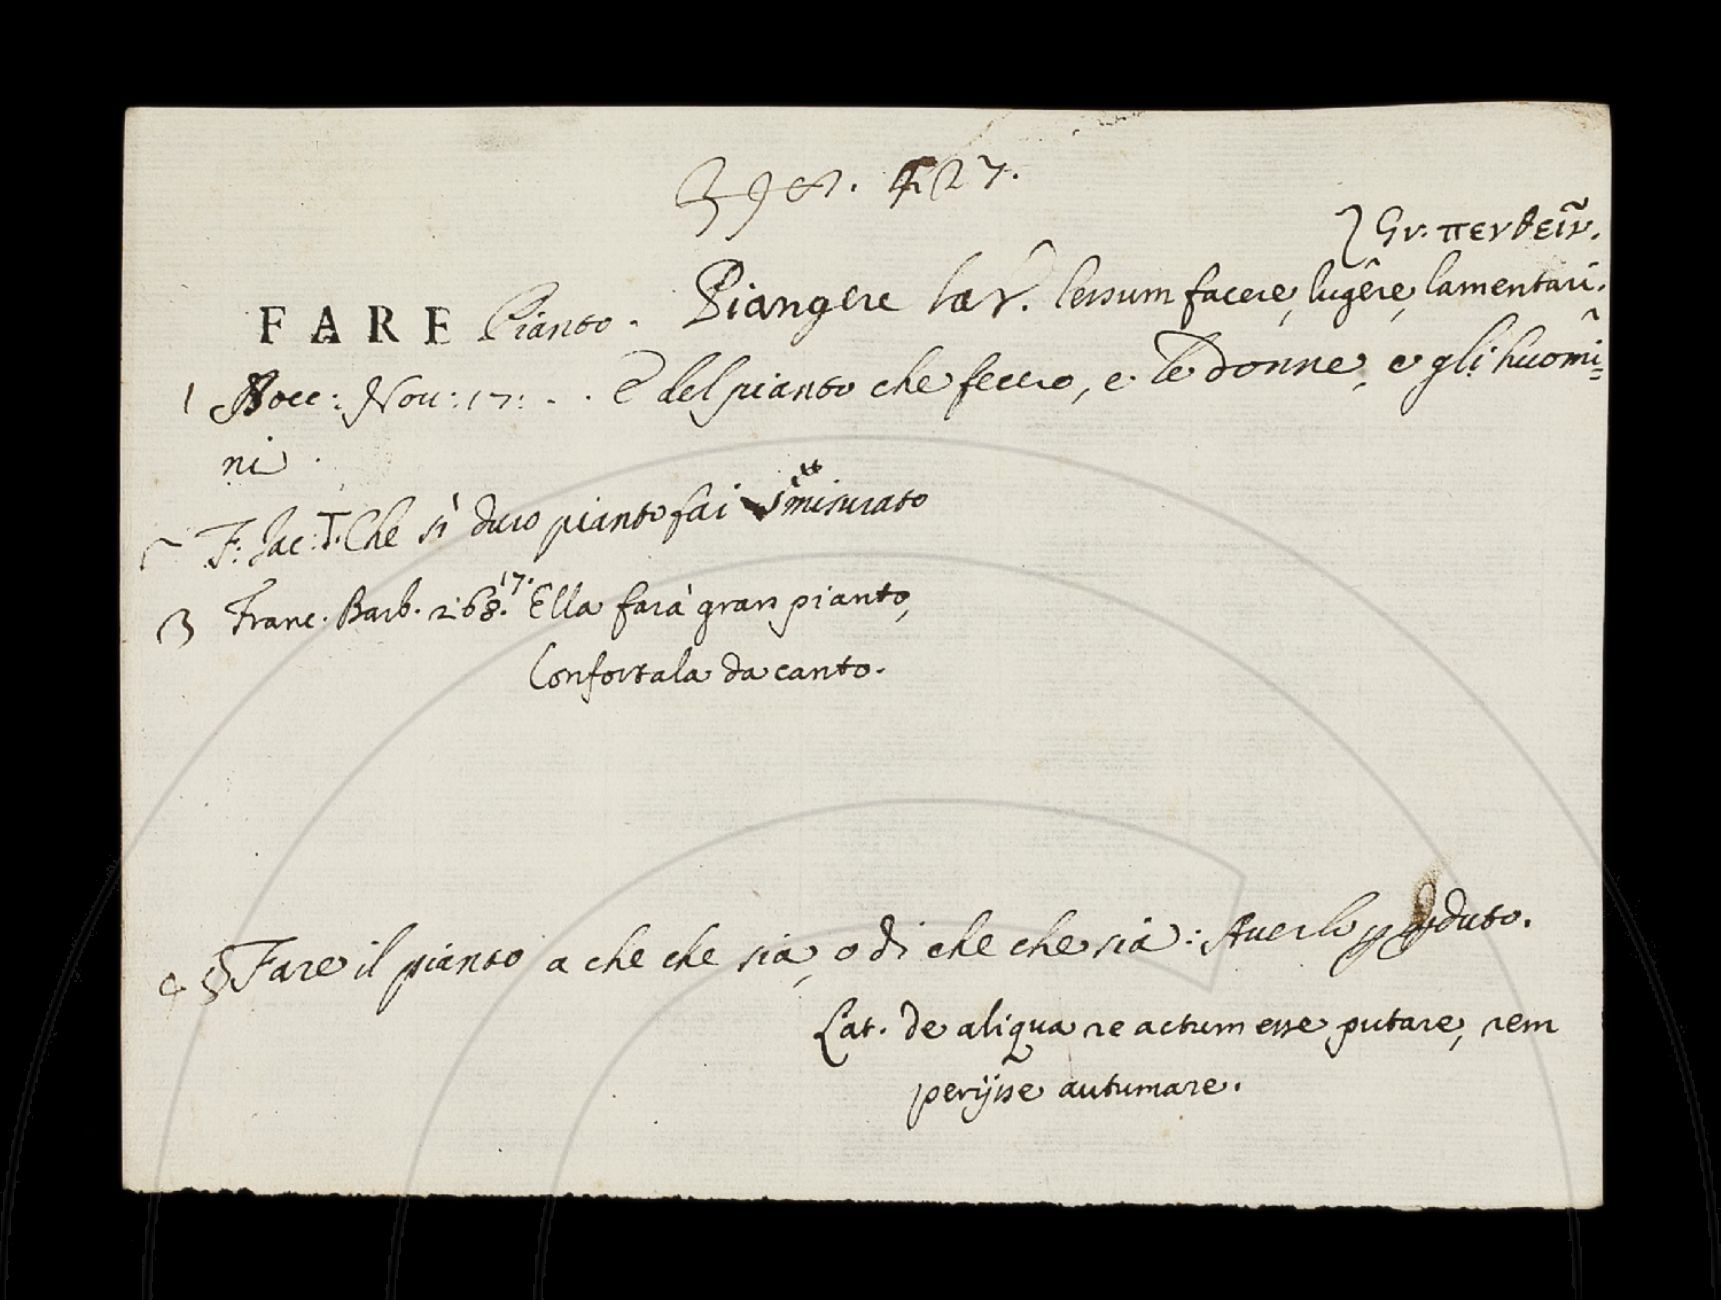 398. 427.
} Gr. πενθεῖν.
FARE Pianto. Piangere Lat. lessum facere, lugêre, lamentari.
1 Bocc: Nov: 17: . . E del pianto che fecero, e le donne, e gli huomi=
ni.
F: Jac: T. Che sì duro pianto fai smisurato
3 Franc. Barb. 268. 17. Ella farà gran pianto,
Confortala da canto.
4 § Fare il pianto a che che sia, o di che che sia: Averlo perduto.
Lat. de aliqua re actum esse putare, rem
perijsse autumare.